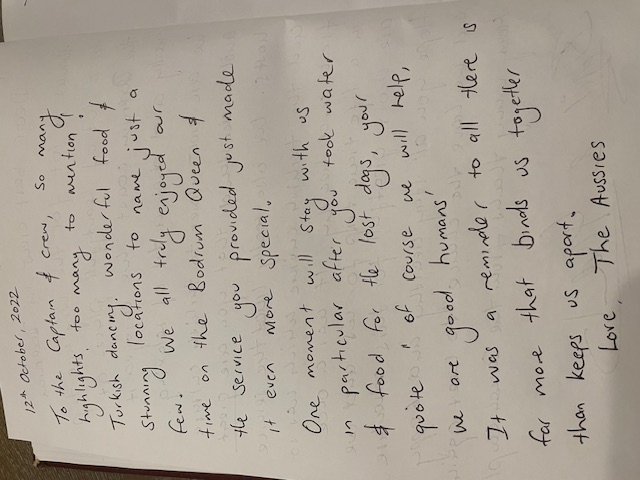 12th October, 2022
To the Captain & crew, so many
highlights, too many to mention!
Turkish dancing, wonderful food &
stunning locations to name just a
few. We all truly enjoyed our
time on the Bodrum Queen &
the service you provided just made
it even more special.
One moment will stay with us
in particular after you took water
& food for the lost dogs, your
quote 'of course we will help,
we are good humans'
It was a reminder to all there is
far more that binds us together
than keeps us apart.
Love, The Aussies